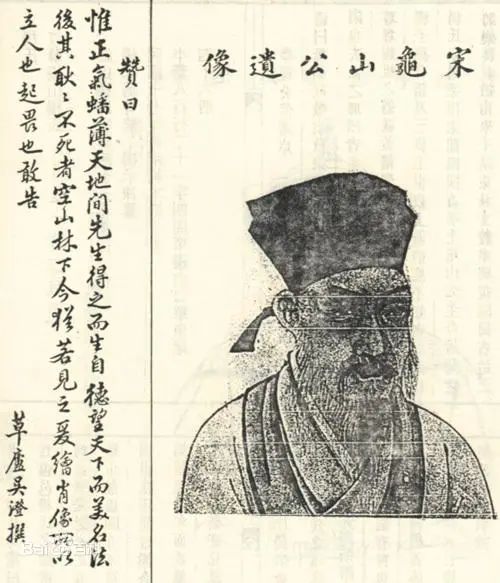 宋龜山公遺像
贊曰
惟正氣蟠薄天地間先生得之而生自德望天下而美名法
後其耿々不死者空山林下今猶若見之爰繪肖像所以
立人也起畏也敢告
草廬吳澄撰
Baidu百科